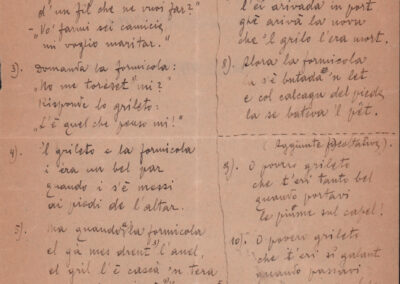 d'un fil che ne vuoi far?"
- "Vo' farmi sei camicie,
mi voglio maritar."
3). Domanda la formicola:
"No me toreset mi?"
Risponde lo grileto:
"L'è quel che penso mi!"
4). 'l grileto e la formicola
i éra un bel par
quando i s'è messi
ai piedi de l'altar.
5). Ma quando la formicola
el gà mes drent l'anel,
el gril l'è cascà 'n tera
l'ei arivada in port
ghè arivà la nova
che 'l grilo l'era mort.
8). Alora la formicola
la s'è butada 'n let
e col calcagn del piede
la se bateva 'l pèt.
(Aggiunte facoltative).
9). O povero grileto
che t'eri tanto bel
quando portavi
le piume sul capel!
10). O povero grileto
che t'eri sì galant
quando passavi